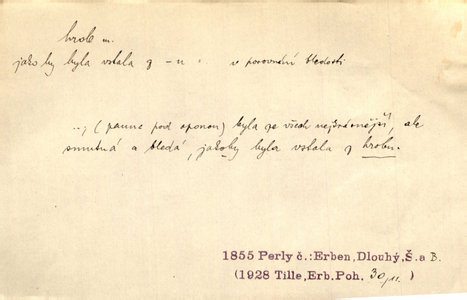 hrob m.
jako by byla vstala z -u . v porovnání bledosti
..., (panna pod oponou) byla ze všech nejkrásnější, ale
smutná a bledá, jakoby byla vstala z hrobu.
1855 Perly č.:Erben,Dlouhý,Š.a B.
(1928 Tille,Erb.Poh. 30/11. )